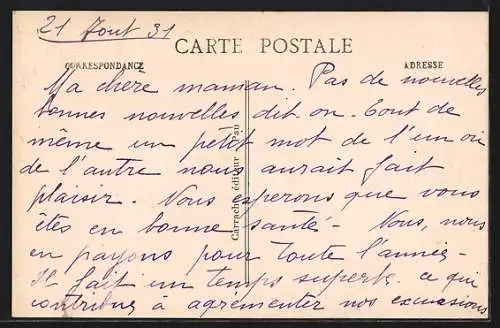 21 Aout 31
CARTE POSTALE
CORRESPONDANCE
ADRESSE
Ma chère maman. Pas de nouvelles
bonnes nouvelles dit-on. Tout de
même un petit mot de l'un ou
de l'autre nous aurait fait
plaisir. Nous esperons que vous
êtes en bonne santé - Nous, nous
en payons pour toute l'année -
Il fait un temps superbe ce qui
contribue à agrémenter nos excursions
Carrache, éditeur - Pau